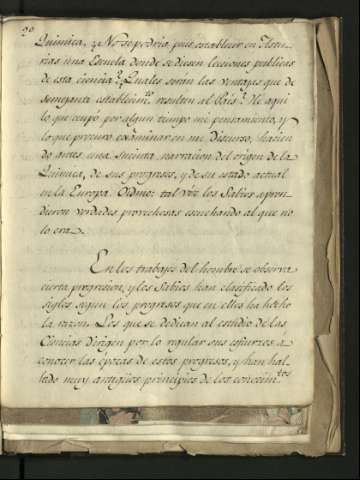 20
Quimica. ¿No se podria pues establecer en Astu-
rias una Escuela donde se diesen lecciones publicas
de esta ciencia? ¿Quales serán las ventajas que de
semejante establecim.to resulten al Pais? He aqui
lo que ocupó por algun tiempo mi pensamiento, y
lo que procuro examinar en mi Discurso, hacien
do antes una sucinta narracion del origen de la
Quimica, de sus progresos, y de su estado actual
en la Europa. Oidme: tal vez los Sabios apren-
dieron verdades provechosas escuchando al que no
lo era.
En los trabajos del hombre se observa
cierta progresion, y los Sabios han clasificado los
siglos segun los progresos que en ellos ha hecho
la razon. Los que se dedican al estudio de las
Ciencias dirigen por lo regular sus esfuerzos a
conocer las épocas de estos progresos, y han hal-
lado muy antiguos principios de los conocim.tos